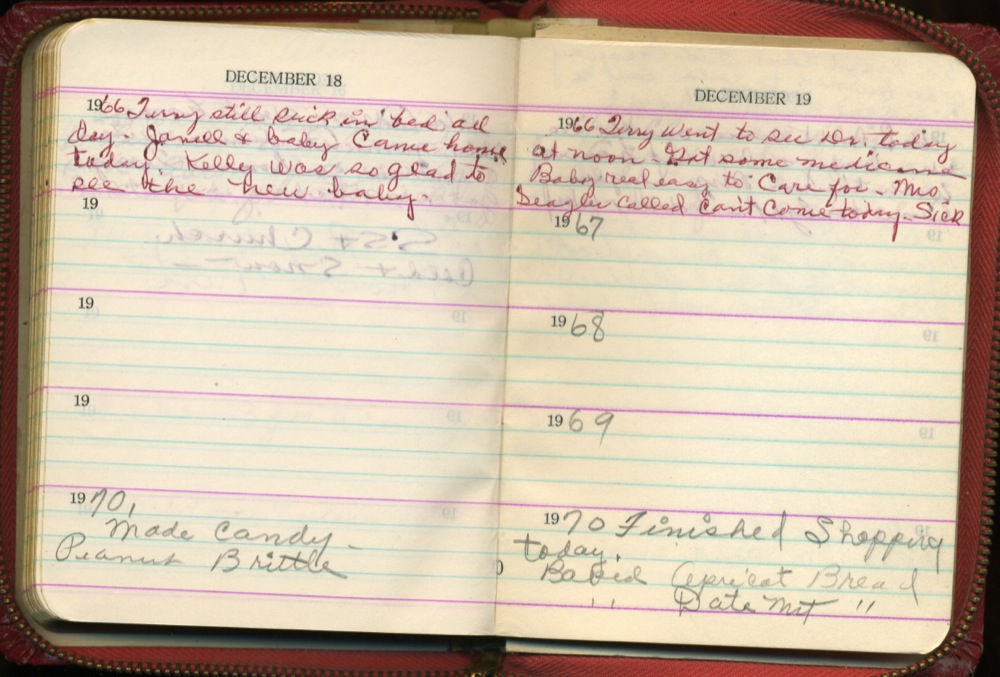 DECEMBER 18
1966 Terry still sick in bed all
day. Janell & baby Came home
today. Kelly was so glad to
see the new baby.
19
19
19
1970,
Made Candy -
Peanut Brittle
DECEMBER 19
1966 Terry went to see Dr. today
at noon. Got some medicine
Baby real easy to Care for. Mrs
called Can't Come today. Sick
1967
1968
1969
1970 Finished Shopping
today.
Baked Apricot Bread
" Date Nut "